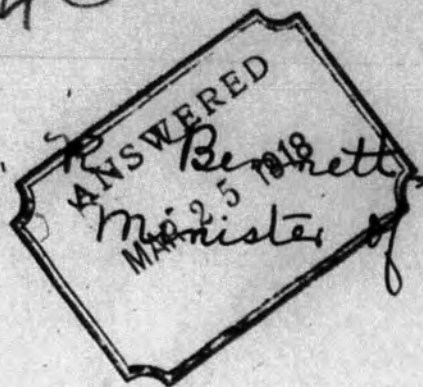 ANSWERED
MAR 25 1918
Bennett
Minister of